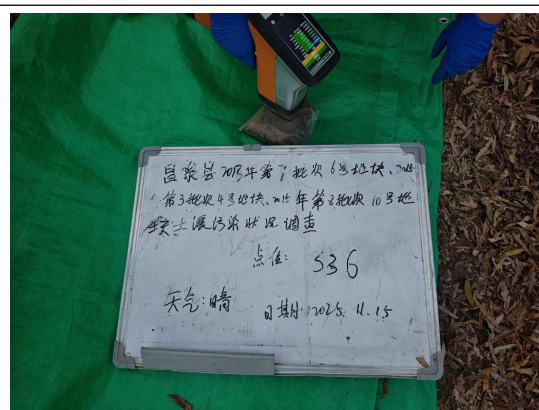 昌黎县2015年第7批次6号地块、2015
第3批次4号地块、2015年第2批次10号地
块土壤污染状况调查
点位: S36
天气:晴 日期: 2025.11.15